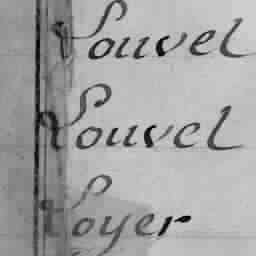 Louvel
Louvel
Loyer